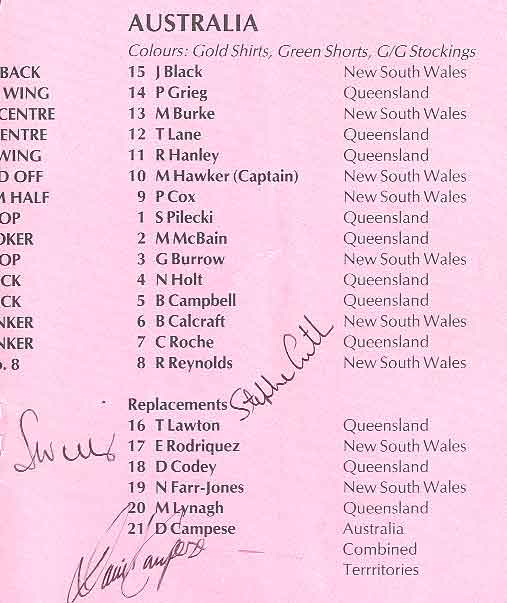 AUSTRALIA
Colours: Gold Shirts, Green Shorts, G/G Stockings
BACK 15 J Black New South Wales
WING 14 P Grieg Queensland
CENTRE 13 M Burke New South Wales
ENTRE 12 T Lane Queensland
WING 11 R Hanley Queensland
D OFF 10 M Hawker (Captain) New South Wales
M HALF 9 P Cox New South Wales
OP 1 S Pilecki Queensland
OKER 2 M McBain Queensland
OP 3 G Burrow New South Wales
CK 4 N Holt Queensland
CK 5 B Campbell Queensland
NKER 6 B Calcraft New South Wales
NKER 7 C Roche Queensland
o. 8 8 R Reynolds New South Wales
Replacements
16 T Lawton Queensland
17 E Rodriquez New South Wales
18 D Codey Queensland
19 N Farr-Jones New South Wales
20 M Lynagh Queensland
21 D Campese Australia
Combined
Terrritories
David Campese